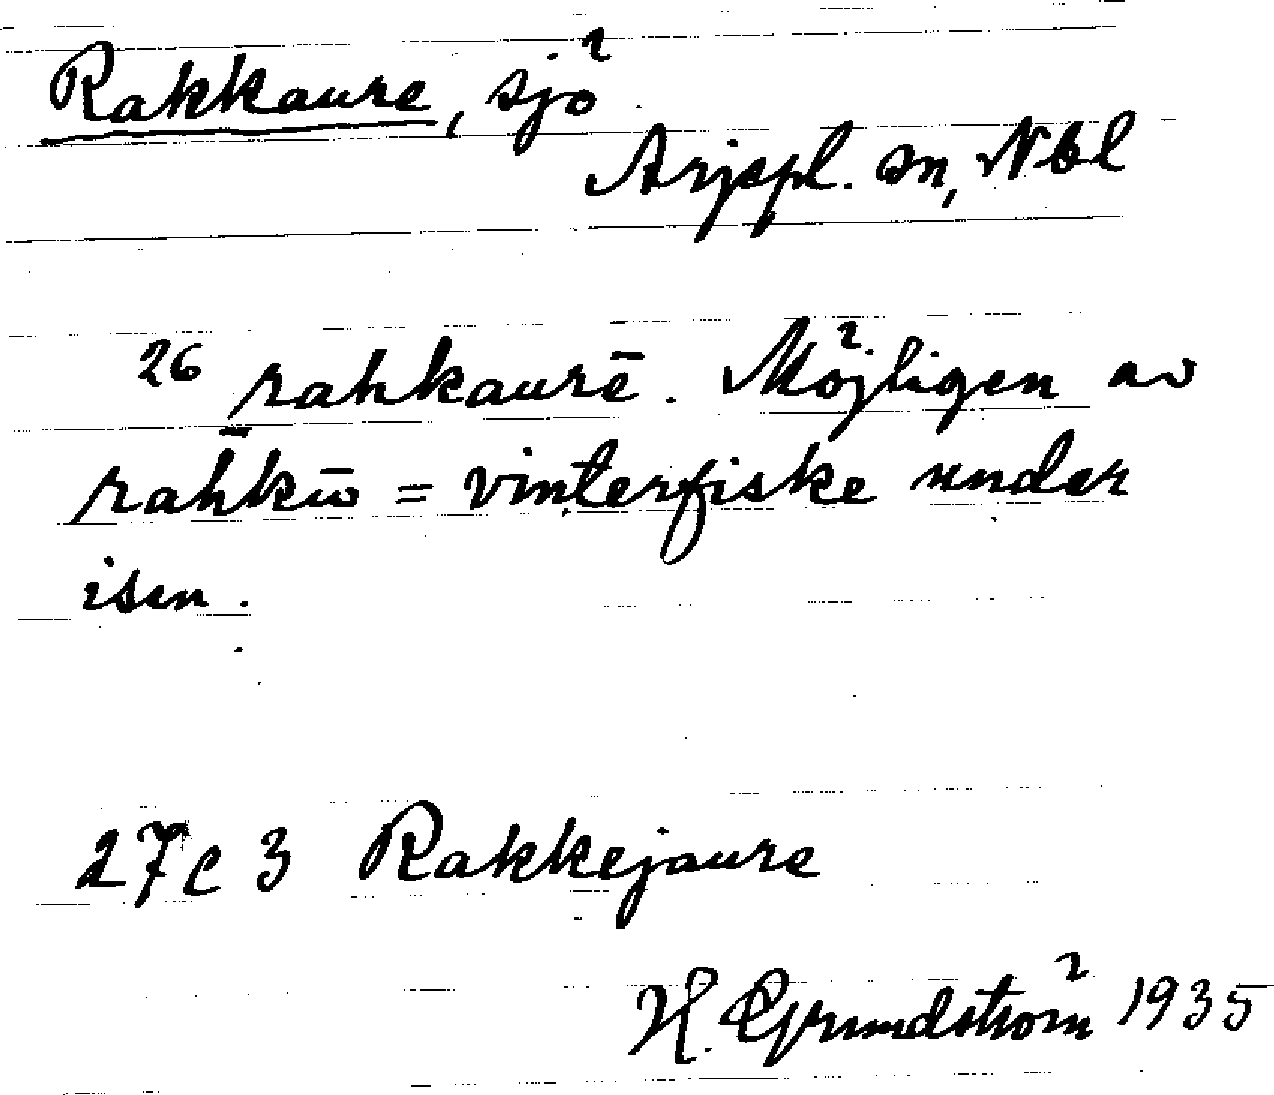 Rakkaure, sjö
Arjepl. sn, Nbl
26 rahkaurē. Möjligen av
rah̄kū = vinterfiske under
isen.
27c3 Rakkejaure
H. Grundström 1935